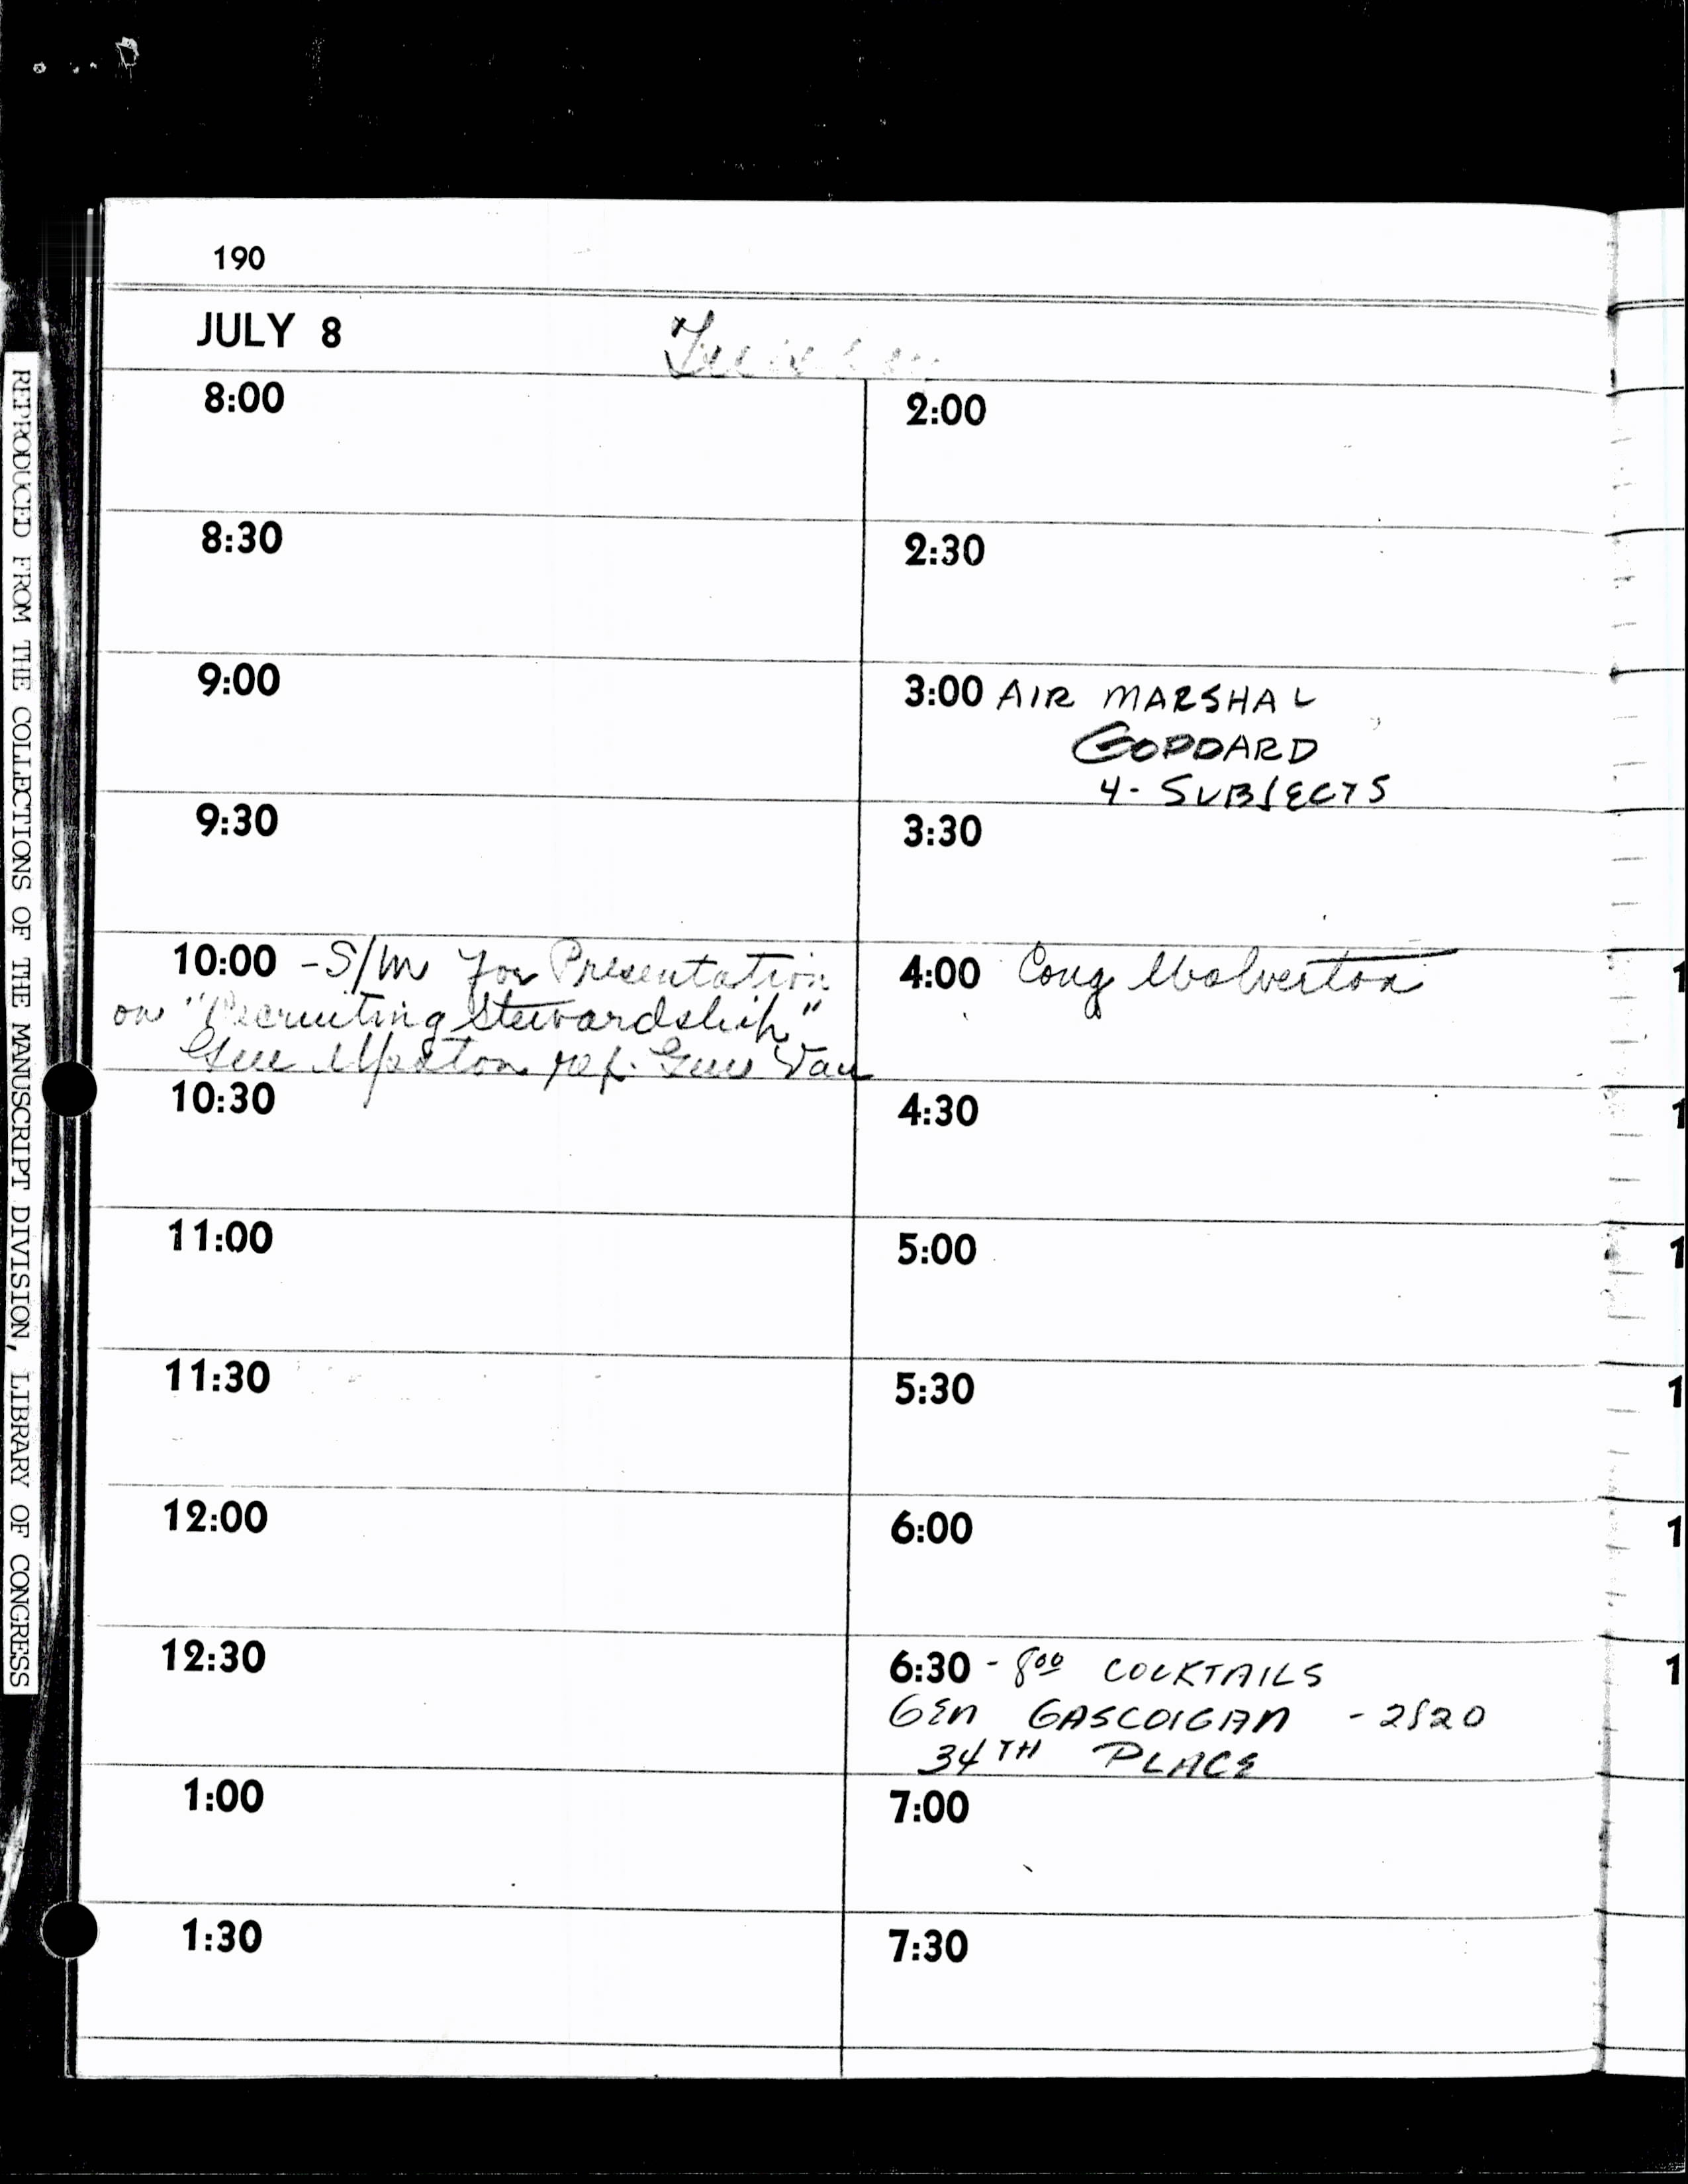 190
JULY 8
8:00
8:30
9:00
9:30
10:00 - S/M for Presentation
on "Recruiting Stewardship"
Gen Upston rep. Gen Van
10:30
11:00
11:30
12:00
12:30
1:00
1:30
2:00
2:30
3:00 AIR MARSHAL
GODDARD
4 - SUBJECTS
3:30
4:00 Cong Wolverton
4:30
5:00
5:30
6:00
6:30 - 800 COCKTAILS
GEN GASCOIGAN - 2820
34TH PLACE
7:00
7:30
REPRODUCED FROM THE COLLECTIONS OF THE MANUSCRIPT DIVISION, LIBRARY OF CONGRESS